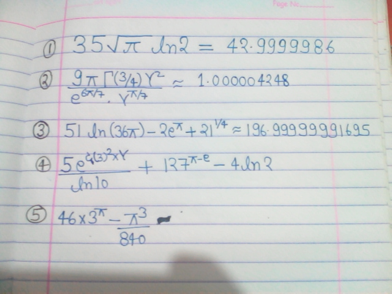 ① 35√π ln2 = 42.9999986
② 9π Γ(3/4) γ² / e^(6π/7) . γ^(π/7) ≈ 1.000004248
③ 51 ln(36π) - 2e^π + 21^(1/4) ≈ 196.99999991695
④ 5e^(ζ(3)²×γ) / ln10 + 127^(π-e) - 4ln2
⑤ 46×3^π - π³/840 -